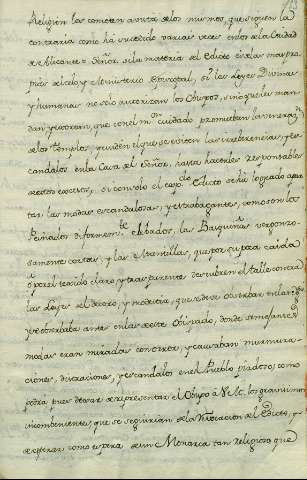 Religion las cometen a vista de los mismos, que siguen la
contraria como há sucedido varias veces en los de la Ciudad
de Alicante = Señor, si la materia del Edicto es de las mas pro
pias del celo, y Ministerio Episcopal, si las Leyes Divinas
y humanas no solo autorizan los Obispos, sino que les man
dan, y exortan, que con el mor cuidado promuevan la veneraon
de los templos, y cuiden el que se eviten las irreberencias, y es
candalos en la Casa del Señor, hasta hacerles responsables
de estos excesos; si con solo el expdo Edicto se há logrado apar
tar las modas escandalosas, y extrabagantes, como son los
Peinados disformemte elevados, las Basquiñas vergonzo
samente cortas, y las Mantillas, que por su poca caida
ó por el tejido claro, y trasparente descubren el talle contra
las Leyes del decoro, y modestia, que se deve observar en la
y se observaba antes en las de este Obispado, donde semejantes
modas eran miradas con orror, y causaban murmura
ciones, disensiones, y escandalos en el Pueblo piadoso; como
podrá pues dexar de representar el Obispo á V.M. los gravisimos
incombenientes, que se seguirian de la revocacion del Edicto, y
de esperar como espera de un Monarca tan Religioso que